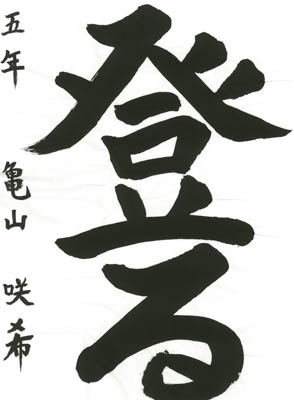 登る
五年 亀山 咲希